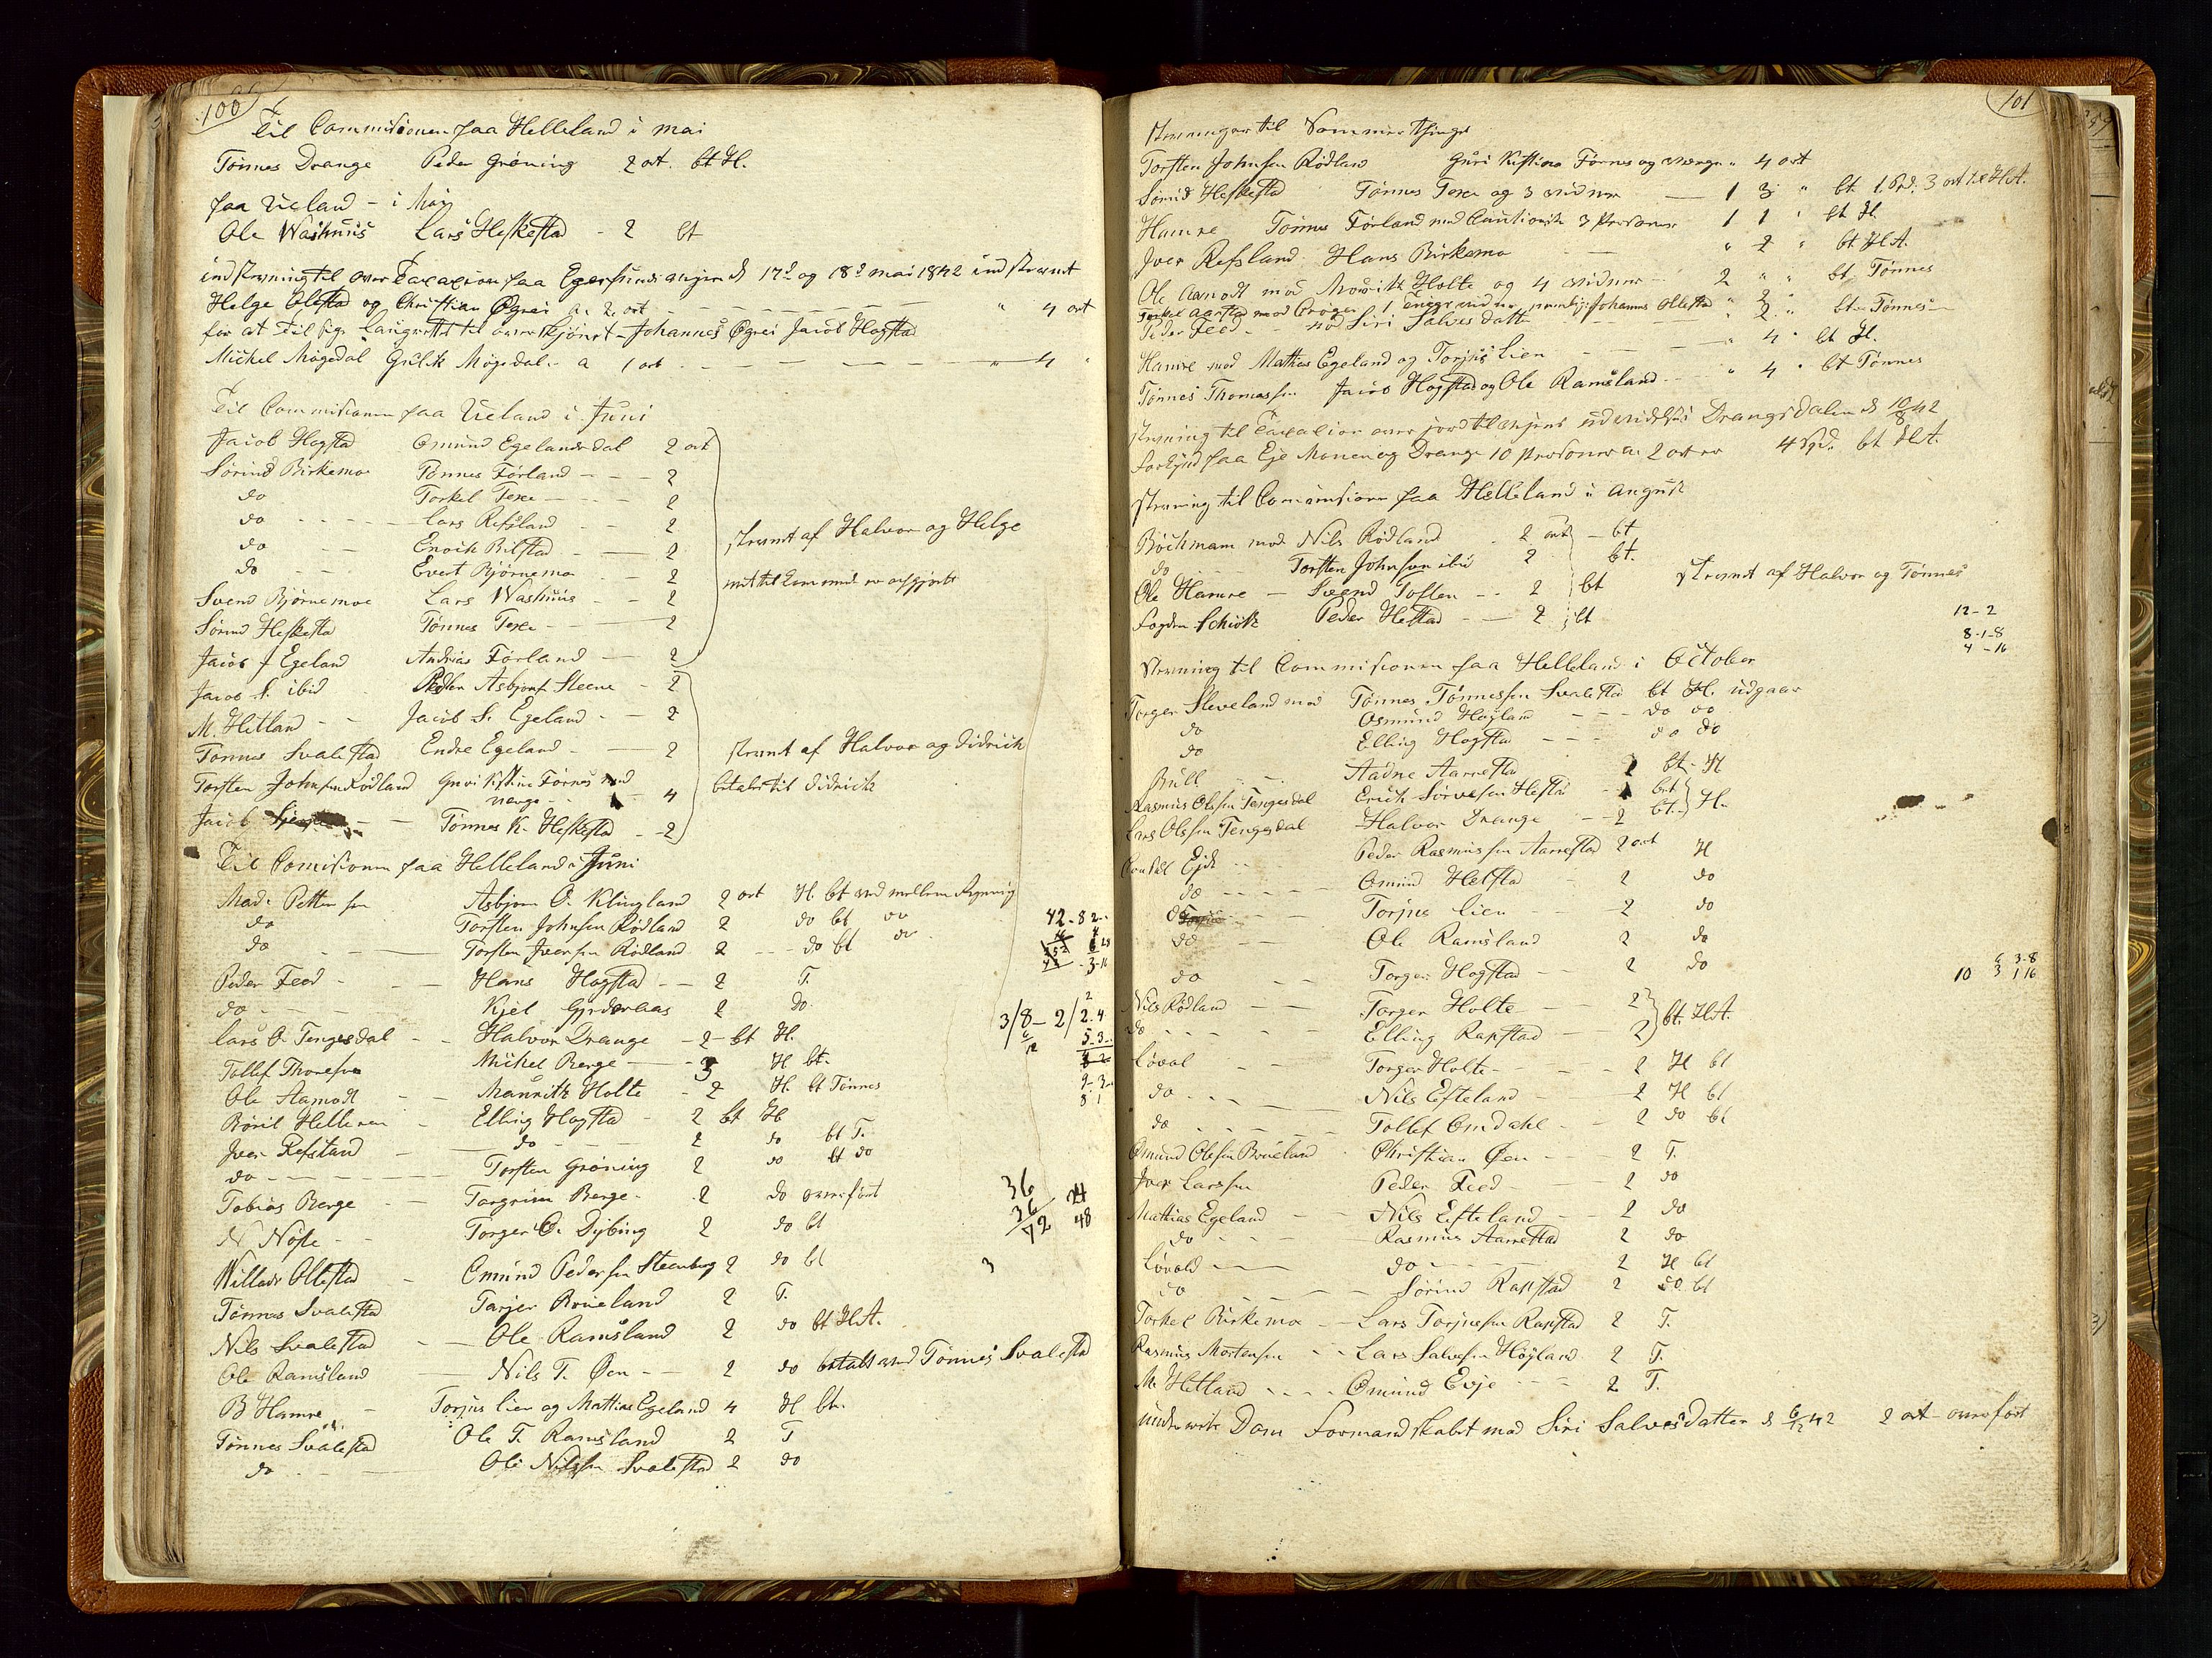 100
Til Commisionen paa Helleland i mai
Tønnes Drange Peder Grøning 2 ort. bt H.
paa Ueland - i Mai
Ole Washuus Lars Heskestad - 2 bt
indstevning til over Taxaxion paa Egersund d 17d og 18d mai 1842 indstevnt
Helge Ollestad og Christian Øgrei a 2 ort - - - " 4 ort
for at til sige Laugrettet til overskjønt - Johannes Øgrei Jacob Hogstad
Michel Møgedal Gulik Møgedal - a 1 ort - - - " 4 "
Til Commisionen paa Ueland i Juni
Jacob Hogstad Omund Egelandsdal 2 ort
Sørind Birkemoe Tønnes Førland - - 2
do Torkel Texe - - 2
do - - - Lars Refsland - - 2
do - - Enoch Bilstad - 2
do - - Evert Bjørnemo - - 2
Svend Bjørnemoe Lars Washuus - - 2
Sørind Heskestad Tønnes Texe - - 2
Jacob J Egeland Andreas Førland - 2
stevnt af Halvor og Helge
Jacob S. ibid Peder Asbjørns Steene - 2
M. Hetland - - Jacob S. Egeland - - 2
Tønnes Svalestad Endre Egeland - - 2
Torsten Johnsen Rødland Guri Kistine Førnes med
verge - - 4
Jacob - - Tønnes K. Heskestad - 2
stevnt af Halvor og Didrich
betalt til Didrich
Til Comisionen paa Helleland i Juni
Mad. Pettersen Asbjørn O. Klungland 2 ort H. bt ved mellem Regning
do Torsten Johnsen Rødland 2 do bt do
do - - Torsten Iversen Rødland 2 - - do bt do
Peder Feed - - - Hans Hogstad - - 2 T.
do - - - Kjel Gyderaas 2 do
Lars O. Tengesdal - - Halvor Drange - 2 - bt H.
Tollef Thorsen Michel Berge - - 3 H bt.
Ole Aamodt - - Mauritz Holte - 2 H. bt Tønnes
Børil Helleren Elling Hogstad - 2 bt H
Iver Refsland - - do - - 2 do bt T.
do - - - Torsten Grøning 2 do bt do
Tobias Berge - - Torgrim Berge - 2 do overført
N Nøse - - Torger O. Dybing 2 do bt
Willads Ollestad - Omund Pedersen Steenberg 2 do bt
Tønnes Svalestad Tarjer Brueland 2 T.
Nils Svalestad - - Ole Ramsland 2 do bt H.A.
Ole Ramsland - Nils T. Øen - - 2 do betalt ved Tønnes Svalestad
B Hamre - Torjus Lien og Mathias Egeland 4 H bt.
Tønnes Svalestad Ole T. Ramsland 2 T
do - - Ole Nilssen Svalestad 2 do
42-82
3/8 - 2/2.4
36
36
72
24
48
3
101
stevninger til Sommer Thinget
Torsten Johnsen Rødland Guri Kistine Førnes og verge " 4 ort
Sørind Heskestad Tønnes Texe og 3 vidner - 1 3 " bt 1 Spd. 3 ort til H.A.
Hamre Tønnes Førland med Cautionist 3 Personer 1 1 " bt H.
Iver Refsland Hans Birkemo - - " 2 " bt H.A.
Ole Aamodt mod Mauritz Holte og 4 vidner - 2 " " bt Tønnes
Peder Feed - - mod Siri Salvesdatter - - " 2 " bt Tønnes
Hamre mod Mathias Egeland og Torjus Lien - - " 4 " bt H.
Tønnes Thomassen Jacob Hogstad og Ole Ramsland - " 4 " bt Tønnes
stevning til Taxasion over jord Drangsdalen d 10/8 42
paa Eje Monen og Drange 10 Personer a 2 ort er 4 Spd. bt H.A.
stevning til Comimsionen paa Helleland i august
Bøckmann mod Nils Rødland - 2 ort - bt
do Torsten Johnsen ibid 2 bt.
Ole Hamre - Svend Toften - - 2 bt
Fogden Schiøtz Peder Hestad - - 2 bt
stevnt af Halvor og Tønnes
12-2
8-1-8
4-16
stevning til Commisionen paa Helleland i October
Torger Sleveland mod Tønnes Tønnessen Svalestad bt H. udgaar
do Osmund Høyland - - - do do
do Elling Hogstad - - - do do
Bull - - Aadne Aarrestad 2 bt - H
Rasmus Olsen Tengesdal Erich Sørensen Hestad - bt
Lars Olssen Tengesdal Halvor Drange - - 2 bt. H.
Eide - - Peder Rasmussen Aarrestad 2 ort H
do - - - Omund Hetstad - 2 do
do - - Torjus Lien - - 2 do
do - - Ole Ramsland 2 do
do - - Torger Hogstad - - 2 do
Nils Rødland - - Torger Holte - - 2
do - - - Elling Rapstad - 2 bt H.A.
Løvol - - Torger Holte - - - 2 H bt
do - - - Nils Efteland - - 2 H bt
do - - - Tollef Omdahl - - 2 do bt
Omund Olsen Brueland Christian Øen - - 2 T.
Iver Larssen Peder Feed - - 2 do
Mathias Egeland - - Nils Efteland - - 2 do
do - - Rasmus Aarrestad 2 do
Løvold - - do - - - 2 H bt
do - - - Sørind Rapstad 2 do bt
Torkel Birkemo - - Lars Torjusen Rapstad 2 T.
Rasmus Mortensen - - Lars Salvesen Høyland 2 T.
M. Hetland - - - Omund Eeje - - - 2 T.
Dom Formandskabet mod Siri Salvesdatter d 6/12 42 2 ort - overført
6 3-8
10 3 1 16